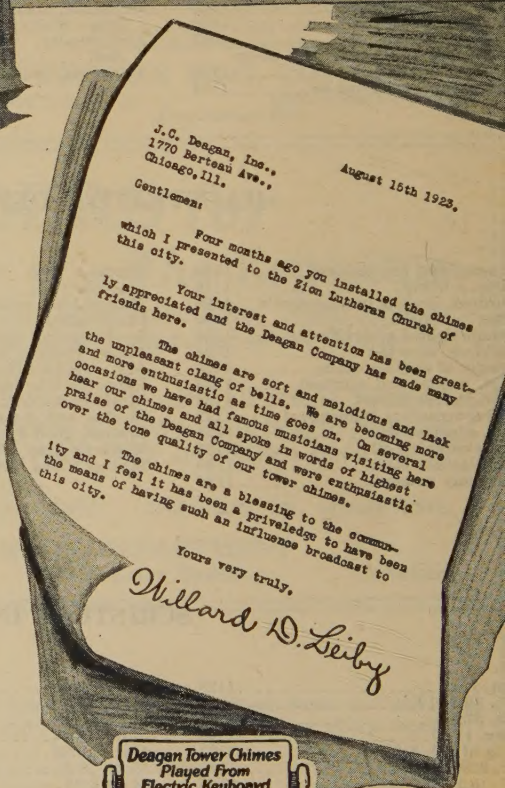 August 15th 1923.
J.C. Deagan, Inc.,
1770 Berteau Ave.,
Chicago, Ill.
Gentlemen:
Four months ago you installed the chimes
which I presented to the Zion Lutheran Church of
this city.
Your interest and attention has been great-
ly appreciated and the Deagan Company has made many
friends here.
The chimes are soft and melodious and lack
the unpleasant clang of bells. We are becoming more
and more enthusiastic as time goes on. On several
occasions we have had famous musicians visiting here
hear our chimes and all spoke in words of highest
praise of the Deagan Company and were enthusiastic
over the tone quality of our tower chimes.
The chimes are a blessing to the commun-
ity and I feel it has been a priveledge to have been
the means of having such an influence broadcast to
this city.
Yours very truly,
Willard D. Leiby
Deagan Tower Chimes
Played From
Electric Keyboard